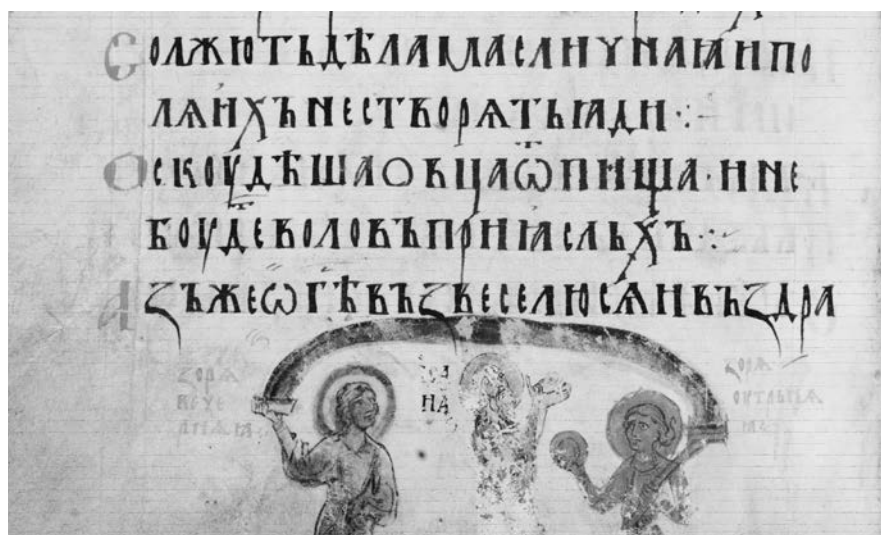 СОЛЖЮТЬДѢЛАМАСЛИЧНАꙖИПО
ЛѦИХЪНЕСТВОРѦТЬꙖДИ⁘-
ОСКОУДѢШАОВЦАѾПИЩА·ИНЕ
БОУДЕⷮВОЛОВЪПРИꙖСЛЬХЪ⁘
АЗЪЖЕѠГѢВЪЗВЕСЕЛЮСѦИВЪЗДРА
ЗОРѦ
ВЕЧЕ
НА
ЗОРѦ